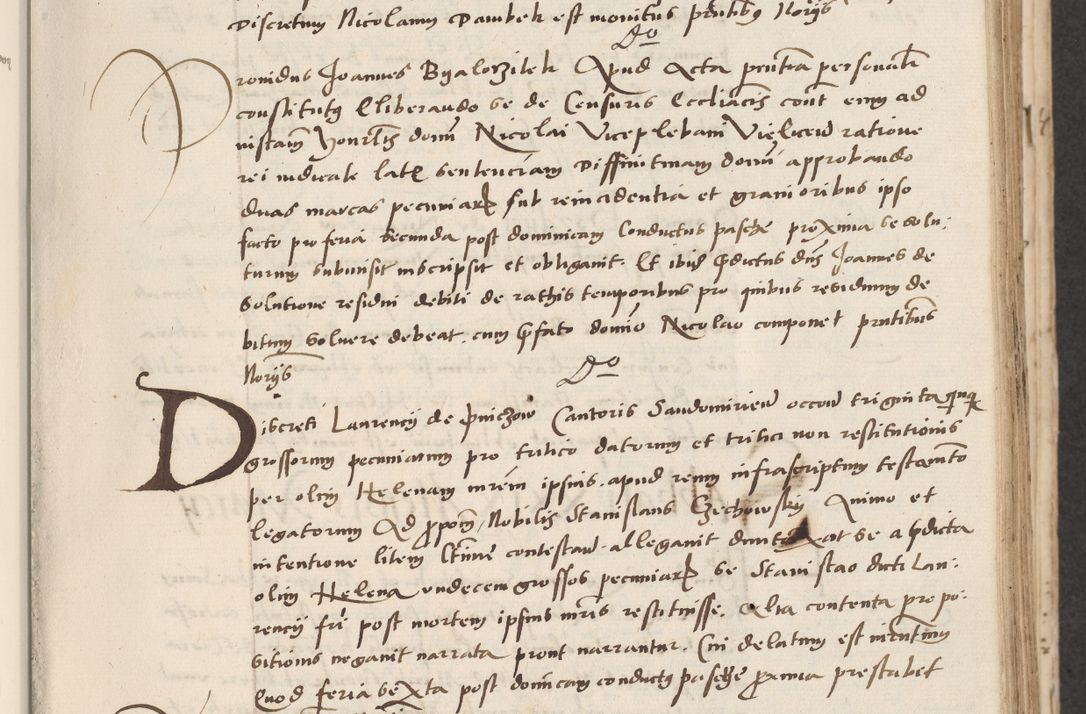 Discretum Nicolaum Dambek est monitus pntibus Norijs
Do
Prouidus Joannes Byalozilek Apud Acta pnntia personalr
constitutus Eliberando se de Censuris Eccliacis cont enm ad
instam Honrlis domi Nicolai Viceplebani Vielicen ratione
rei iudicate late sentenciam Diffinitiuam domi approbando
duas marcas pecuniar sub reincidentia et grauioribus ipso
facto pro feria secunda post dominicam Conductus pasche proxima se solu:
turum submisit inscripsit et obligauit. Et ibid pdictus dns Joannes de
solutione residui debiti de rathis temporibus pro quibus residuum de
bitum soluere debeat. cum pfato domino Nicolao componet pntibus
Norijs
Do
Discreti Laurencij de Pinczow Cantoris Sandomirien occon triginta quinq
grossorum pecuniarum pro tritico datorum et tritici non restitutionis
per olim Helenam mrem ipsius. apud reum infrascriptum testamto
legatorum Ad ppom, Nobilis Stanislaus Czechowskij Animo et
intentione litem Ctine contestan. allegauit duntaxat se a pdicta
olim Helena vndecem grossos pecuniar se Stanislao dicti Lau:
rencij fri post mortem ipsius mris restituisse. Alia contenta propo:
sitionis negauit narrata prout narrantur. Cui delatum est iuramtum
Quod feria sexta post domicam conductus pasche proxima prestabit